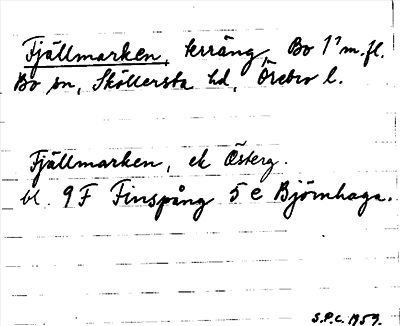 Fjällmarken, terräng, Bo 1¹ m.fl.
Bo sn, Sköllersta hd, Örebro l.
Fjällmarken, ek Österg.
bl. 9F Finspång 5 e Björnhaga.
S.P.C. 1959.